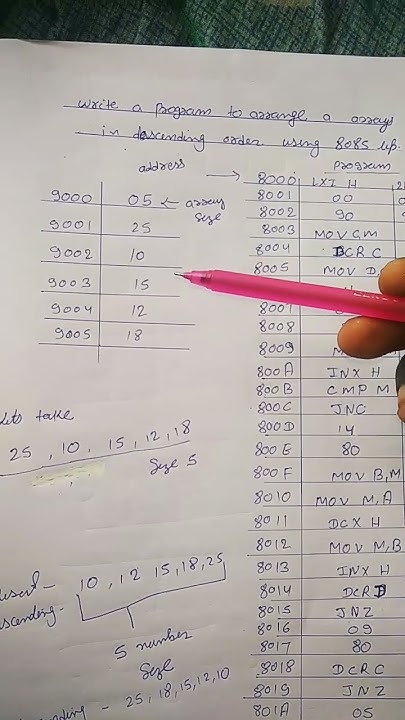 Write a program to arrange a arrays
in descending order using 8085 up.
address
9000 05 ← array size
9001 25
9002 10
9003 15
9004 12
9005 18
Lets take
25, 10, 15, 12, 18
Size 5
10, 12 15, 18, 25
5 number
Size
25, 18, 15, 12, 10
program
8000 LXI H
8001 00
8002 90
8003 MOV C,M
8004 DCR C
8005 MOV D,
8008
8009
800A INX H
800B CMP M
800C JNC
800D 14
800E 80
800F MOV B,M
8010 MOV M,A
8011 DCX H
8012 MOV M,B
8013 INX H
8014 DCR D
8015 JNZ
8016 09
8017 80
8018 DCR C
8019 JNZ
801A 05